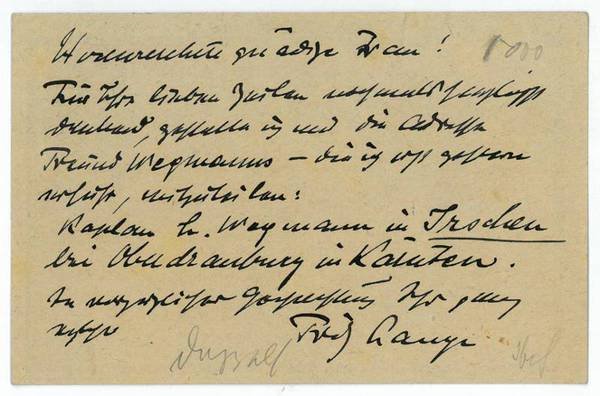 Hochverehrte gnädige Frau!
Für Ihre lieben Zeilen nochmals herzlichst
dankend, gestatte ich mir die Adresse
Freund Wegmanns – die ich erst gestern
erfuhr, mitzuteilen:
Kaplan H. Wegmann in Irschen
bei Oberdrauburg in Kärnten.
In vorzüglicher Hochachtung Ihr ganz
Fritz Lange